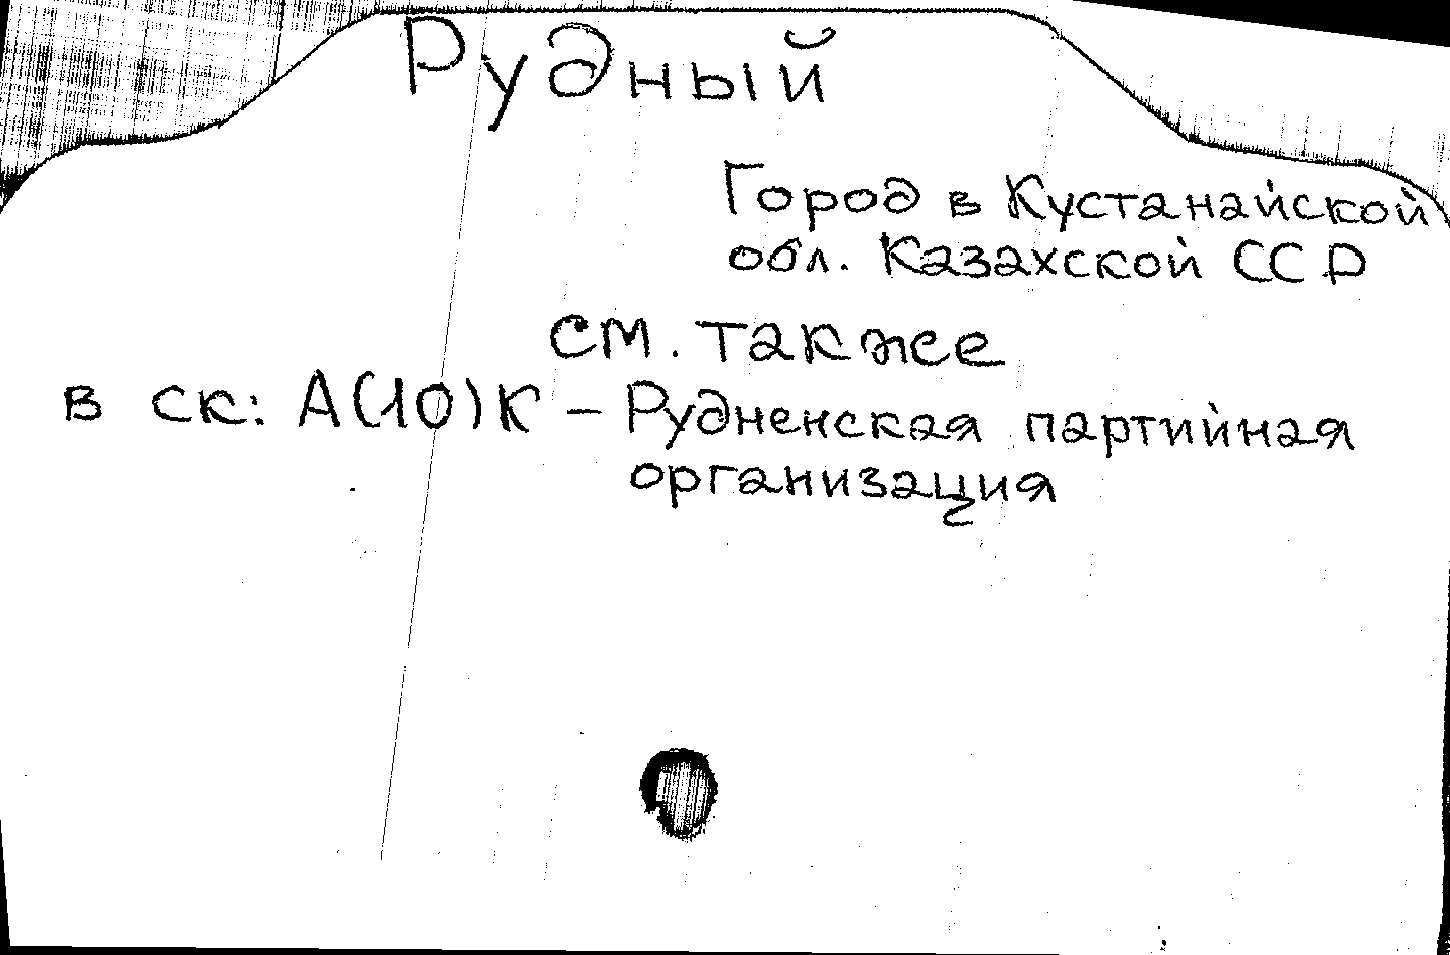 Рудный
Город в Кустанайской
обл. Казахской ССР
см. также
в ск: А(10)К – Рудненская партийная
организация